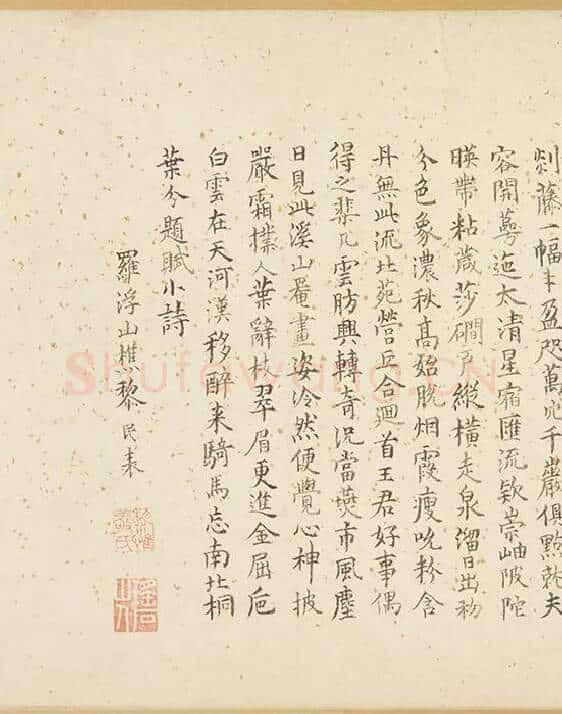 剡藤一幅才盈咫萬壑千巖俱點就夫
容開萼迤太清星宿匯流欽崇岫陂陀
暎帶粘葳莎礀戶縱橫走泉溜日出初
今色象濃秋高始脫烟霞瘦吮粉含
丹無此流北苑營丘合迴首王君好事偶
得之棐几雲肪興轉奇況當燕市風塵
日見此溪山罨畫姿泠然便覺心神披
嚴霜撲人葉辭枝翠眉更進金屈卮
白雲在天河漢移醉来騎馬忘南北桐
葉今題賦小詩
羅浮山樵黎民表
Shufawang.CN